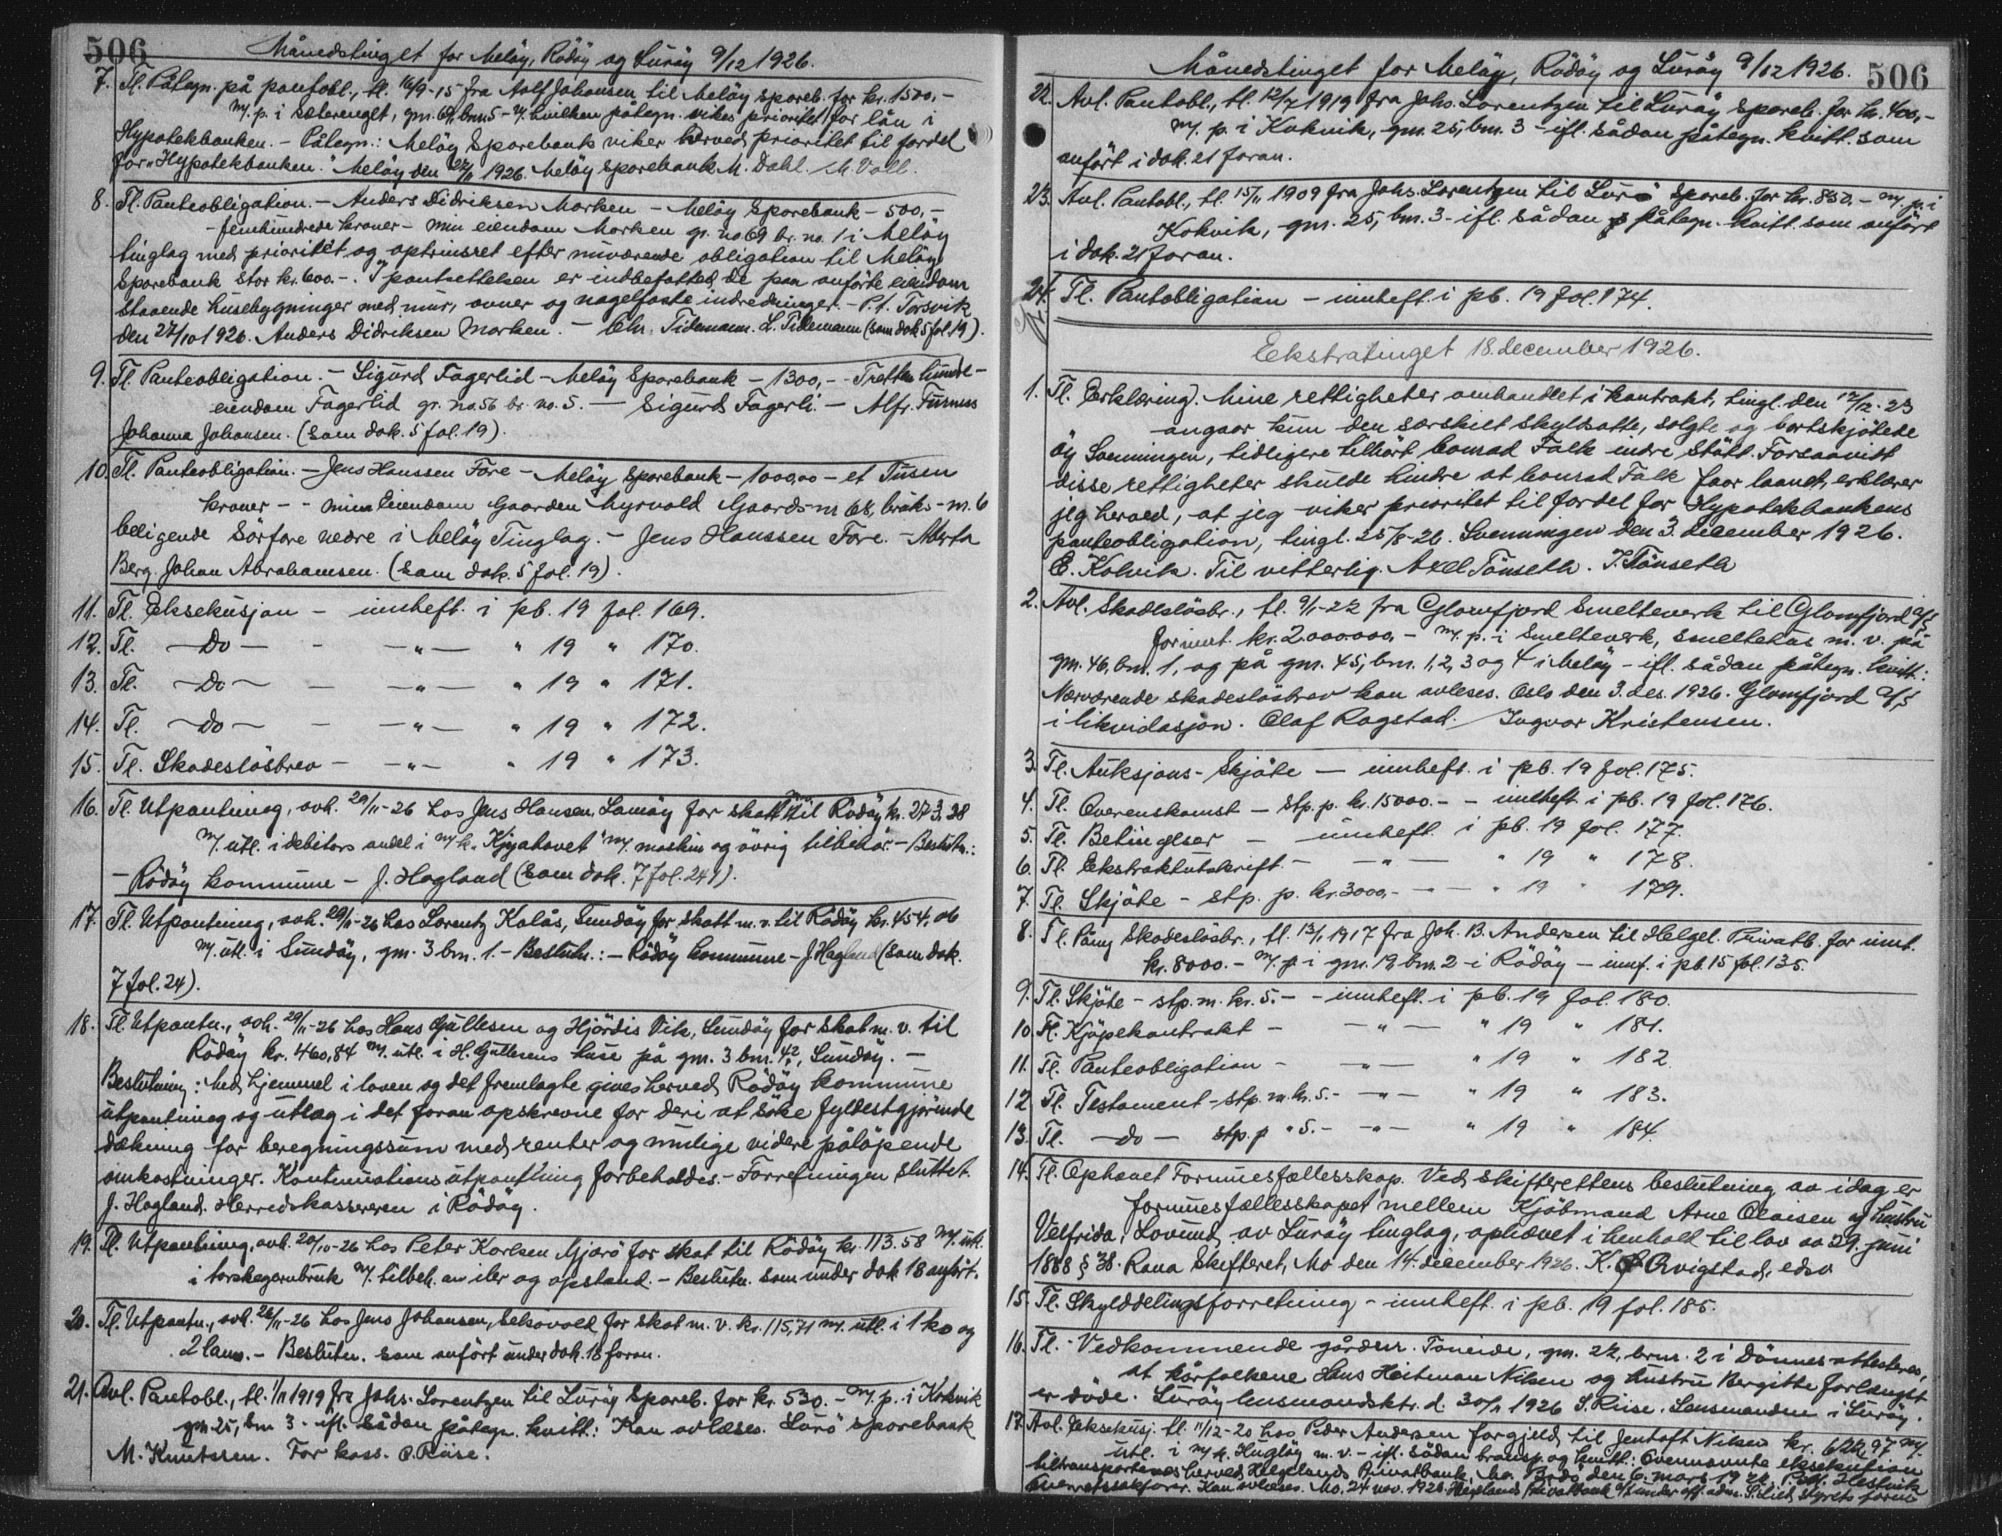 506
Månedstinget for Meløy, Rødøy og Lurøy 9/12 1926.
7. Tl. Påtegn. på pantobl., tl. 16/9-15 fra Adolf Johansen til Meløy spareb. for kr. 1500,-
m/. p. i Sæterenget, gnr. 69, bnr. 5 - v/ hvilken påtegn. vikes prioritet for lån i
Hypotekbanken. - Påtegn.: Meløy Sparebank viker herved prioritet til fordel
for "Hypotekbanken." Meløy den 27/11 1926. Meløy Sparebank M. Dahl. M. Vall.
8. Tl. Panteobligation. - Anders Didriksen Marken - Meløy Sparebank - 500,-
- femhundrede kroner - min eiendom Marken gr. no 69 br. no. 1 i Meløy
tinglag med prioritet og optrinsret efter nuværende obligation til Meløy
Sparebank stor kr. 600.-. I pantsettelsen er indbefattet de paa anførte eiendom
staaende husebygninger med mur, ovner og nagelfaste indredninger. - P.t. Torsvik
den 27/10 1926. Anders Didriksen Marken. - Chr. Tidemann. L. Tidemann (som dok 5 fol. 19).
9. Tl. Panteobligation. - Sigurd Fagerlid - Meløy Sparebank - 1300,- - Tretten hundre -
eiendom Fagerlid gr. no. 56 br. no. 5. - Sigurd Fagerli. - Alfr. Furnes
Johanna Johansen. (som dok. 5 fol. 19).
10. Tl. Panteobligation. - Jens Hanssen Fore - Meløy Sparebank - 1000,00 - et Tusen
kroner - - min Eiendom Gaarden Myrvold Gaards-nr 68, bruks-nr. 6
beligende Sørfore nedre i Meløy Tinglag. - Jens Hanssen Fore. - Marta
Berg. Johan Abrahamsen. (som dok. 5 fol. 19).
11. Tl. Eksekusjon - innheft. i pb. 19 fol. 169.
12. Tl. - Do - - - " - " 19 " 170.
13. Tl. - Do - - - " - " 19 " 171.
14. Tl. - Do - - - " - " 19 " 172.
15. Tl. Skadesløsbrev - - " - " 19 " 173.
16. Tl. Utpantning, avh. 29/11-26 hos Jens Hansen, Samøy for skatt m.v. til Rødøy kr. 273,38
m/. utl. i debitors andel i m/k. "Kjyahavet" m/. maskin og øvrig tilbehør. - Beslutn.:
- Rødøy kommune - J. Hagland (som dok. 7 fol. 24).
17. Tl. Utpantning, avh. 29/11-26 hos Lorentz Kalås, Sundøy for skatt m.v. til Rødøy kr. 454,06
m/. utl. i Sundøy, gnr. 3 bnr. 1. - Beslutn.: - Rødøy kommune - J. Hagland (som dok.
7 fol. 24).
18. Tl. Utpantn., avh. 29/11-26 hos Hans Gullesen og Hjørdis Vik, Sundøy for skat m. v. til
Rødøy kr. 460,84 m/. utl. i H. Gullesens huse på gnr. 3 bnr. 42, Sundøy. -
Beslutning: Med hjemmel i loven og det fremlagte gives herved Rødøy kommune
utpantning og utlæg i det foran opskrevne for deri at søke fyldestgjørende
dækning for beregningssum med renter og mulige videre påløpende
omkostninger. Kontinuations utpantning forbeholdes. - Forretningen sluttet.
J. Hagland. Herredskassereren i Rødøy.
19. Tl. Utpantning, avh. 20/10-26 hos Peter Karlsen Gjarø for skat til Rødøy kr. 113.58 m/. utl.
i torskegarnbruk m/. tilbeh. av iler og opstand. - Beslutn. som under dok 18 anført.
20. Tl. Utpantn., avh. 26/11-26 hos Jens Johansen, Selsøvold for skat m. v. kr. 115,71 m/. utl. i 1 ko og
2 lam. - Beslutn. som anført under dok. 18 foran.
21. Avl. Pantobl., tl. 1/11 1919 fra Johs. Lorentzen til Lurøy Spareb. for kr. 530. - m/. p. i Kokvik
gnr. 25, bnr 3 - ifl. sådan påtegn. kvitt.: Kan avlæses. Lurø sparebank
M. Knutssen. For kass. O. Riise.
506
Månedstinget for Meløy, Rødøy og Lurøy 9/12 1926.
22. Avl. Pantobl., tl. 12/7 1919 fra Johs. Lorentzen til Lurøy Spareb. for kr. 400,-
m/. p. i Kokvik, gnr. 25, bnr. 3 - ifl. sådan påtegn. kvitt. som
anført i dok. 21 foran.
23. Avl. Pantobl., tl. 15/11 1909 fra Johs. Lorentzen til Lurø Spareb. for kr. 850. - m/. p. i
Kokvik, gnr. 25, bnr. 3 - ifl. sådan påtegn. kvitt. som anført
i dok. 21 foran.
24. Tl. Pantobligation - innheft. i pb. 19 fol. 174.
Ekstratinget 18. december 1926.
1. Tl. Erklæring. Mine rettigheter omhandlet i kontrakt, tingl. den 12/12-23
angaar kun den særskilt skyldsatte, solgte og bortskjøtede
øy Svenningen, tidligere tilhørt Conrad Falk indre Støtt. Forsaavidt
disse rettigheter skulde hindre at Conrad Falk faar laanet, erklærer
jeg herved, at jeg viker prioritet til fordel for Hypotekbankens
panteobligation, tingl. 25/8-26. Svenningen den 3. december 1926.
E. Kolvik. Til vitterlig. Axel Tønseth. J. Tønseth
2. Avl. Skadesløsbr., tl. 9/1-22 fra Glomfjord Smelteverk til Glomfjord A/S
for innt. kr. 2.000.000,- m/. p. i Smelteverk, smeltehus m. v. på
gnr. 46, bnr. 1, og på gnr. 45, bnr. 1, 2, 3 og 4 i Meløy - ifl. sådan påtegn. kvitt.:
Nærværende skadesløsbrev kan avleses. Oslo den 3. des. 1926. Glomfjord A/S
i likvidasjon. Olaf Ragstad. Ingvar Kristensen.
3. Tl. Auksjons-Skjøte - innheft. i pb. 19 fol. 175.
4. Tl. Overenskomst - stp. p. kr. 15000.- - innheft. i pb. 19 fol. 176.
5. Tl. Betingelser - innheft. i pb. 19 fol. 177.
6. Tl. Ekstraktutskrift - - " - " 19 " 178.
7. Tl. Skjøte - stp. p. kr. 3000,- - " - " 19 " 179.
8. Tl. Påny Skadesløsbr., tl. 13/1 1917 fra Joh. B. Andersen til Helgel. Privatb. for innt.
kr. 8000. - m/. p. i gnr. 19, bnr. 2 i Rødøy - innf. i pb. 15 fol. 135.
9. Tl. Skjøte - stp. m. kr. 5. - - innheft. i pb. 19 fol. 180.
10. Tl. Kjøpekontrakt - - " - " 19 " 181.
11. Tl. Panteobligation - - " - " 19 " 182
12. Tl. Testament - stp. m. kr. 5. - - " - " 19 " 183.
13. Tl. - do - stp. p " 5. - - " - " 19 " 184.
14. Tl. Ophævet Formuesfællesskap. Ved skifterettens beslutning av idag er
formuesfællesskapet mellem Kjøbmand Arne Olaisen og hustru
Velfrida, Lovund av Lurøy tinglag, ophævet i henhold til lov av 29. juni
1888 § 38. Rana Skifteret, Mo den 14. december 1926. K. Qvigstad, edsv
15. Tl. Skylddelingsforretning - innheft. i pb. 19 fol. 185.
16. Tl. - Vedkommende gårdsnr. Toneide, gnr. 22, brnr. 2 i Dønnes attesteres,
at kårfolkene Hans Heitman Nilsen og hustru Bergitte forlængst
er døde. Lurøy lensmandsktr. d. 30/11 1926 S. Riise. Lensmanden i Lurøy.
17. Avl. Eksekusj. tl. 11/12-20 hos Peder Andersen for gjeld til Jentoft Nilsen kr. 622,97 m/.
utl. i m/k. Hugløy m. v. - ifl. sådan transp. og kvitt.: Ovennævnte eksekution
transporteres herved Helgelands Privatbank, Mo. Bodø den 6. mars 1922.
Overretssakfører. Kan avleses. Mo. 24 nov. 1926. Helgelands Privatbank A/S under off. adm.